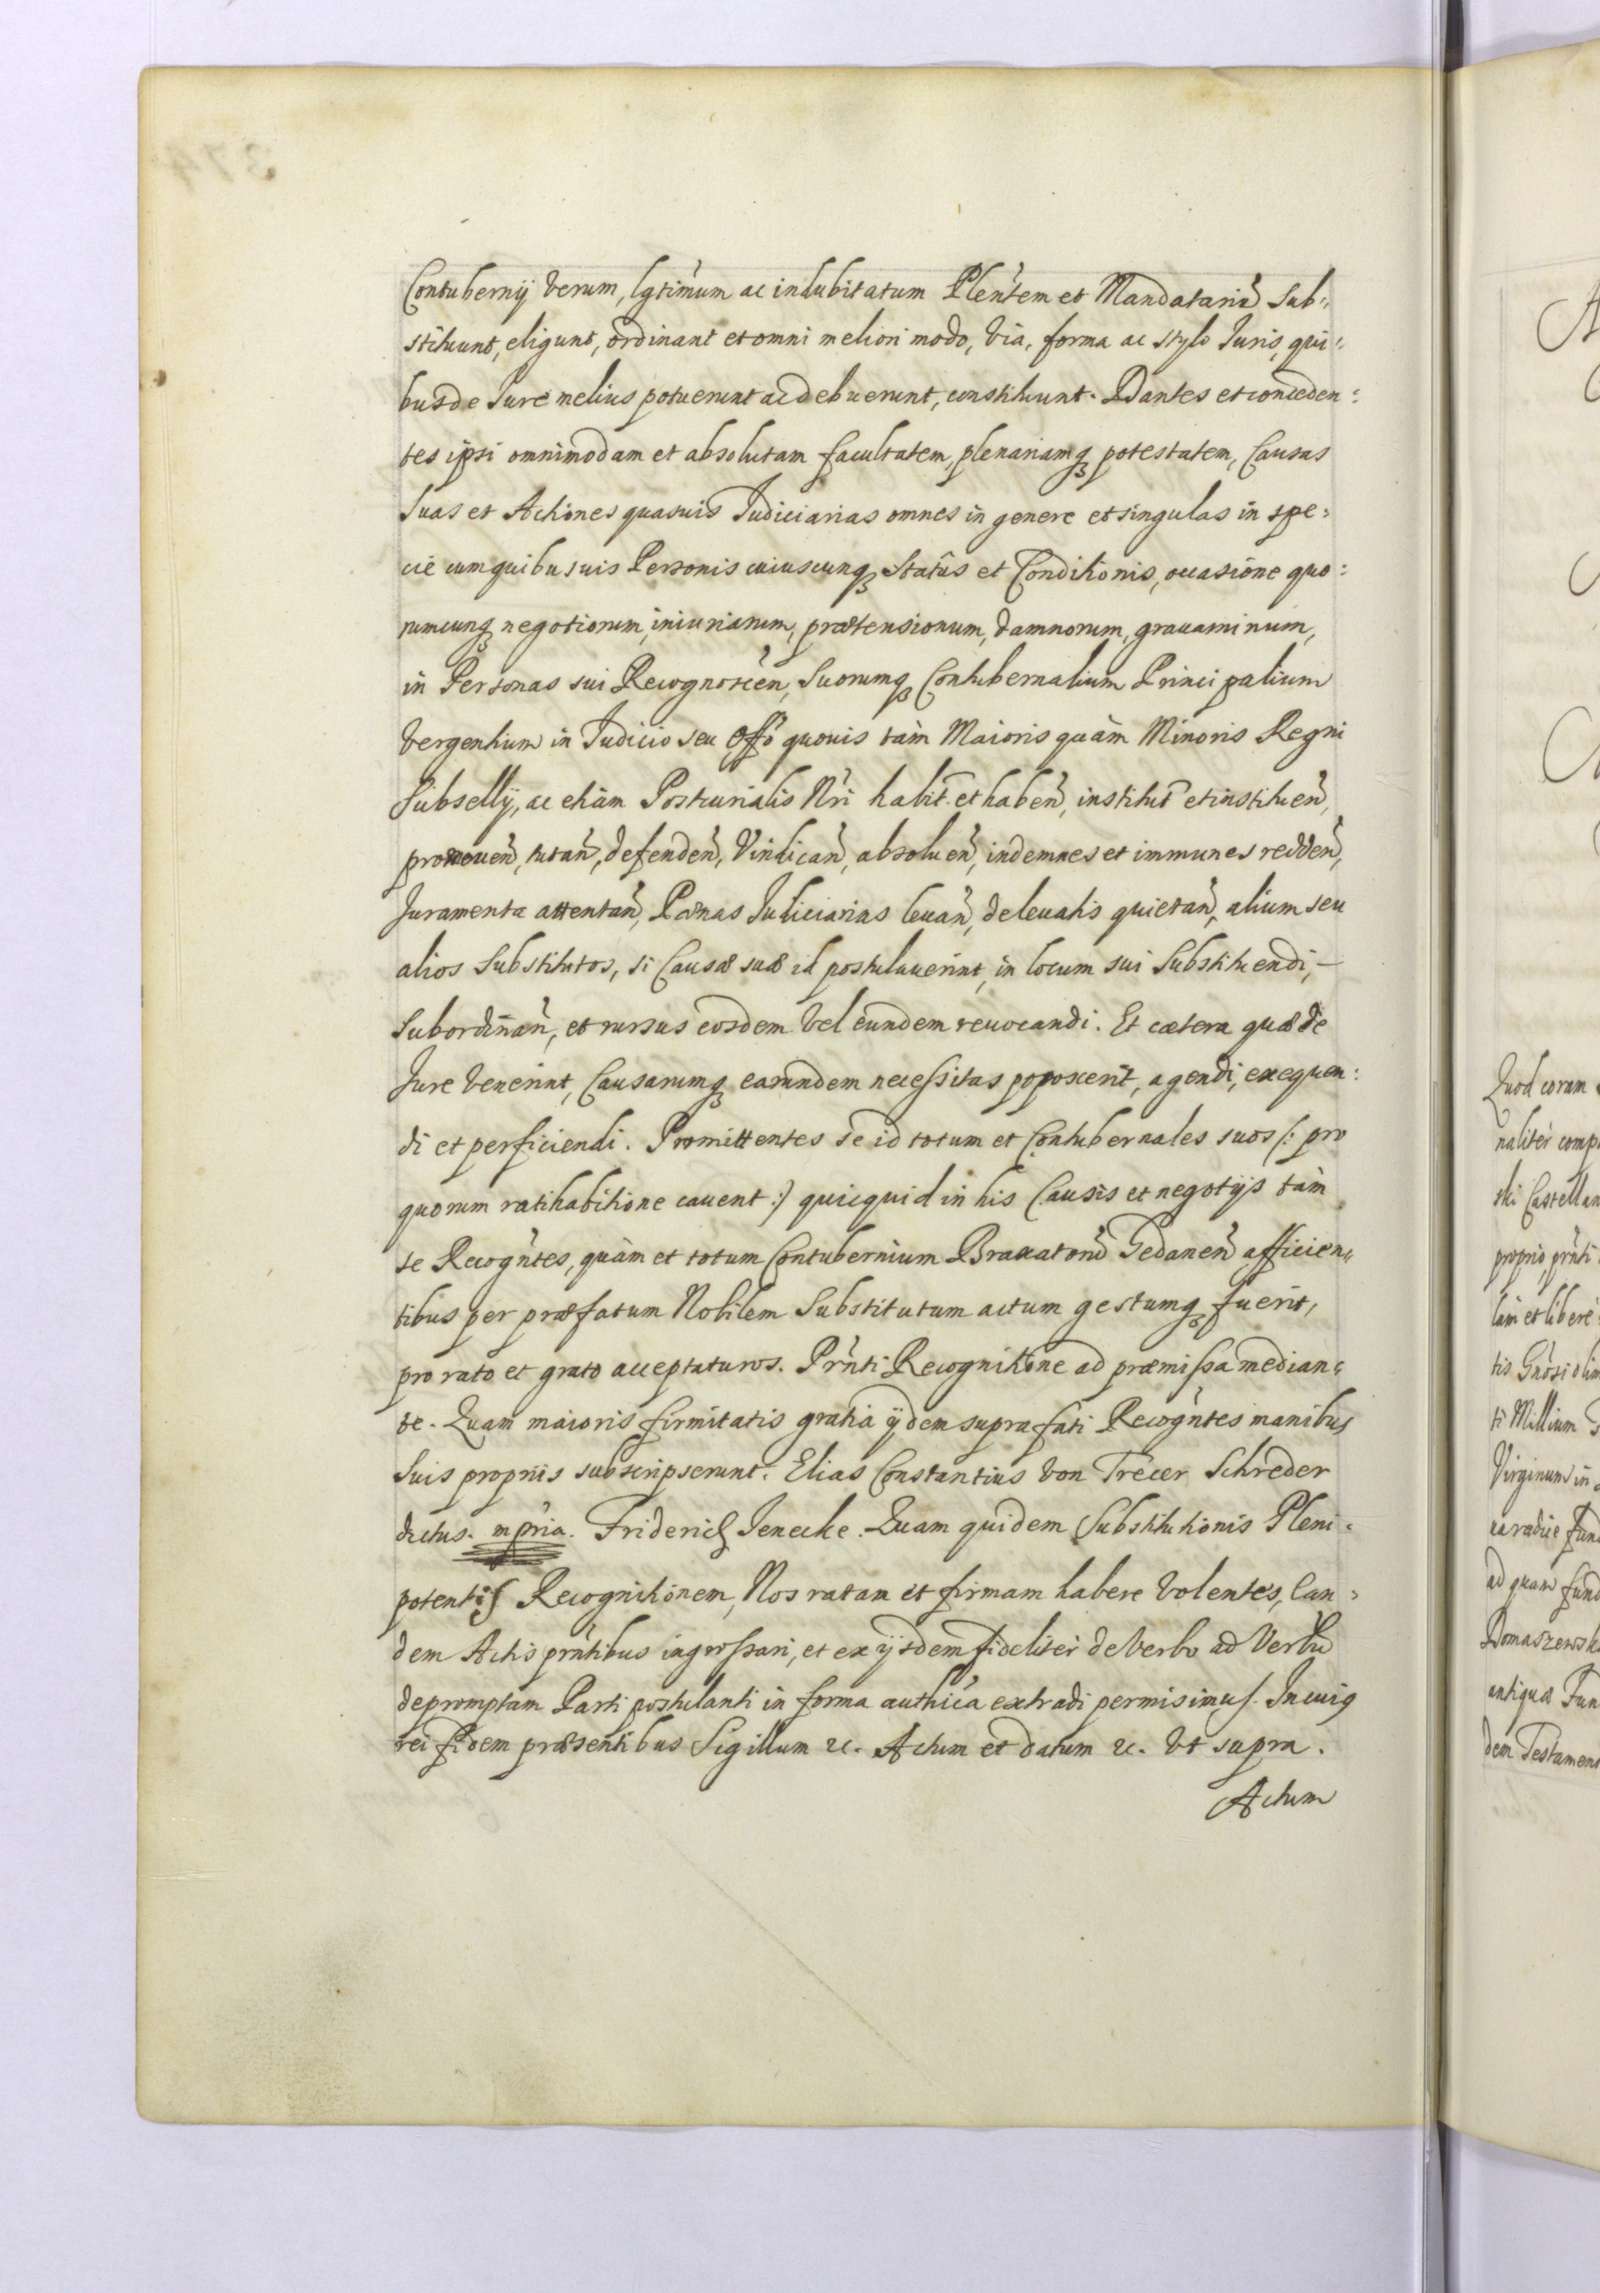 Contubernij verum, lgtimum ac indubitatum Plentem et Mandatariũ Sub:
stituunt, eligunt, ordinant et omni meliori modo, via, forma ac stylo Iuris, qui:
bus de Iure melius potuerunt ac debuerunt, constituunt. Dantes et conceden:
tes ipsi omnimodam et absolutam facultatem, plenariamq̃ potestatem, Causas
Suas et Actiones quasuis Iudiciarias omnes in genere et singulas in spe:
cie cum quibusuis Personis cuiuscunq̃ Statûs et Conditionis, occasione quo:
rumcunq̃ negotiorum, iniuriarum, prætensionum, damnorum, grauaminum,
in Personas sui Recognoscen̄, Suorumq̃ Contubernalium Principalium
vergentium in Iudicio seu Offo quouis tàm Maioris quàm Minoris Regni
Subsellij, ac etiàm Postcurialis Nri habit. et haben̄, institut et instituen̄,
promouen̄, tutan̄, defenden̄, Vindican̄, absoluen̄, indemnes et immunes redden̄,
Iuramenta attentan̄, Pænas Iudiciarias leuan̄, de leuatis quietan̄, alium seu
alios Substitutos, si Causæ suæ id postulauerint, in locum sui Substituendi, –
Subordinan̄, et rursus eosdem vel eundem reuocandi. Et cætera quæ de
Iure venerint, Causarumq̃ earundem necessitas poposcerit, agendi, exequen:
di et perficiendi. Promittentes se id totum et Contubernales suos /: pro
quorum ratihabitione cauent :/ quicquid in his Causis et negotijs tàm
se Recogntes, quàm et totum Contubernium Braxatorũ Gedanen̄ afficien:
tibus per præfatum Nobilem Substitutum actum gestumq̃ fuerit,
pro rato et grato acceptaturos. Prnti Recognitione ad præmissa median:
te. Quam maioris firmitatis gratiâ ijdem suprafati Recogntes manibus
suis proprijs subscripserunt. Elias Constantius von Trecer Schreder
dictus. mpria. Friderich Ienecke. Quam quidem Substitutionis Pleni:
potentis Recognitionem, Nos ratam et firmam habere volentes, Ean:
dem Actis prntibus ingrossari, et ex ijsdem fideliter de verbo ad verbũ
depromptam Parti postulanti in forma authica extradi permisimus. In cuig
rei fidem præsentibus Sigillum &c. Actum et datum &c. vt supra.
Actum
Quod coram
naliter comp
ski Castellan
proprio, prnti
làm et libere
ti Millium
Virginum in
ad quam fund
Domaszewsk
antiquæ Fun
dem Testamen